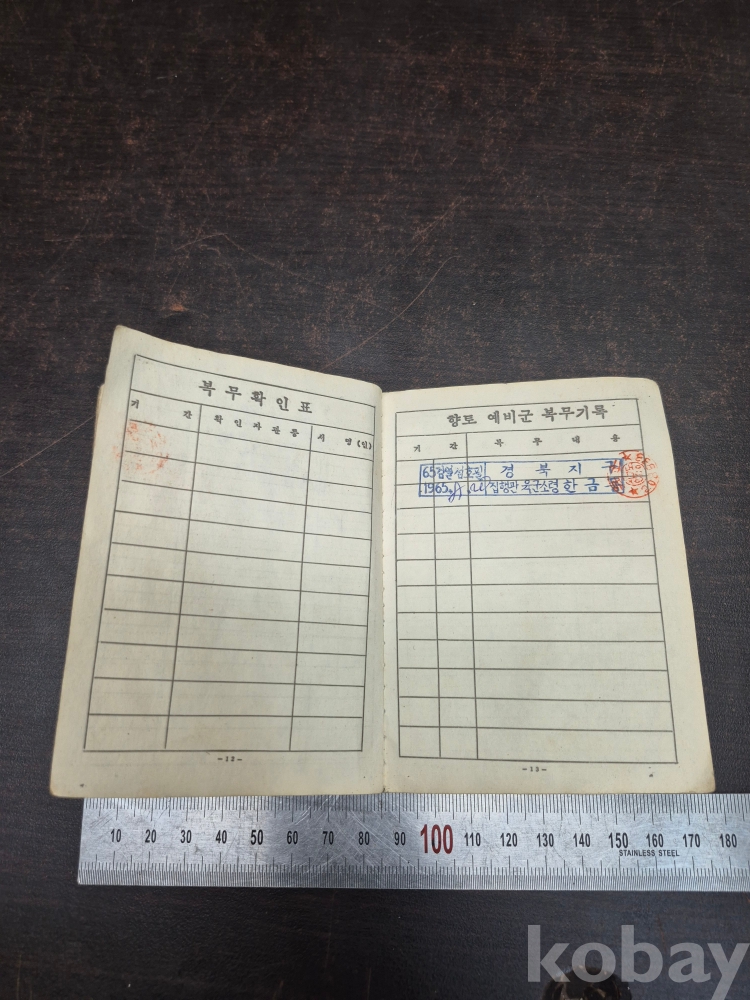 복무확인표
기 간 확인자관등 서 명(인)
-12-
향토 예비군 복무기록
기 간 복 무 내 용
경 북 지 구
1965. 집행관 육군소령 한 금
-13-
10 20 30 40 50 60 70 80 90 100 110 120 130 140 150 160 170 180
STAINLESS STEEL
kobay